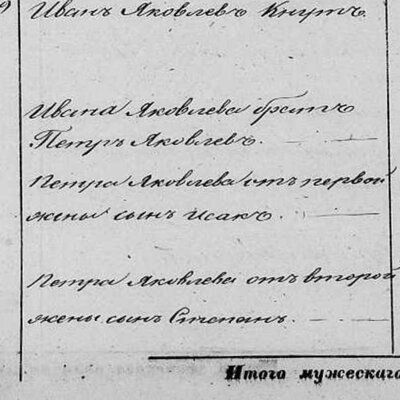 9
Иванъ Яковлевъ Кнутъ.
Ивана Яковлева братъ
Петръ Яковлевъ.
Петра Яковлева отъ первой
жены сынъ Исакъ.
Петра Яковлева отъ второй
жены сынъ Степанъ.
Итого мужескаго